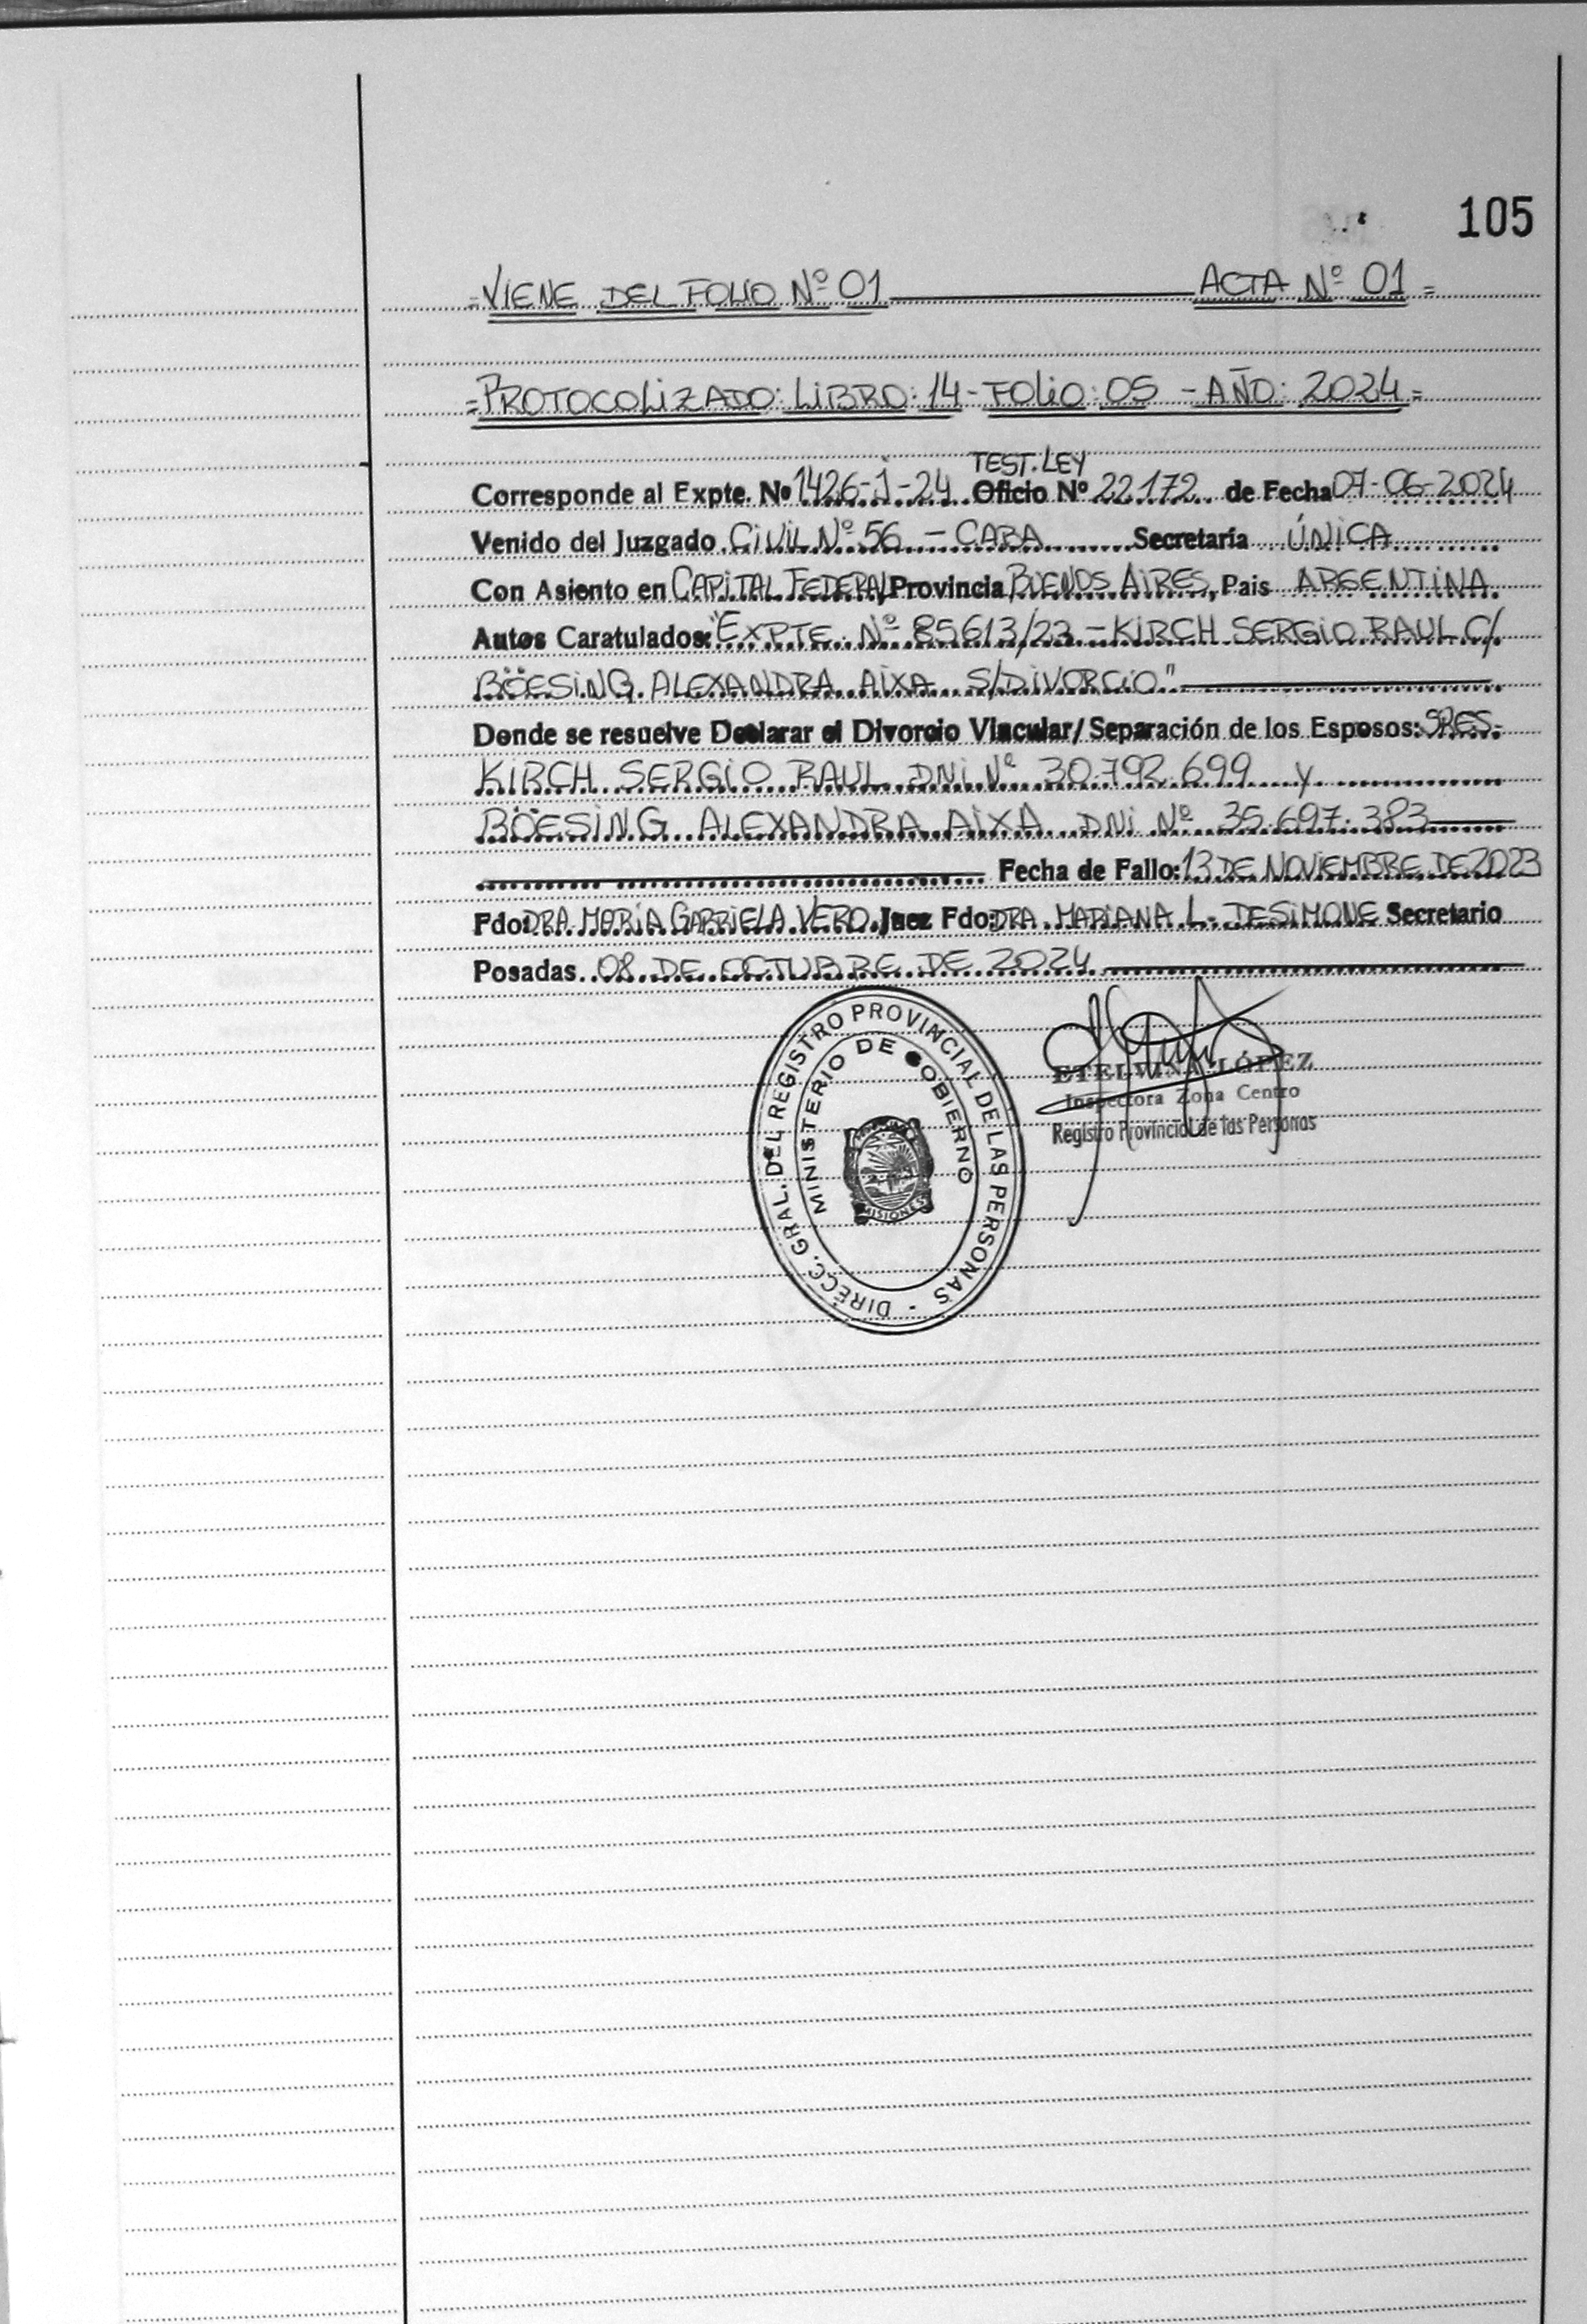 105
=VIENE DEL FOLIO Nº 01 ACTA Nº 01=
=PROTOCOLIZADO: LIBRO: 14 - FOLIO: 05 - AÑO: 2024=
TEST. LEY
Corresponde al Expte. Nº 1426-J-24 Oficio Nº 22.172 de Fecha 07-06-2024
Venido del Juzgado CIVIL Nº 56 - CABA Secretaría ÚNICA
Con Asiento en CAPITAL FEDERAL Provincia BUENOS AIRES, Pais ARGENTINA
Autos Caratulados: "EXPTE. Nº 85613/23 - KIRCH SERGIO RAUL C/
BÖESING ALEXANDRA AIXA S/DIVORCIO"
Donde se resuelve Declarar el Divorcio Vincular/Separación de los Esposos: SRES.
KIRCH SERGIO RAUL DNI Nº 30.792.699 y
BÖESING ALEXANDRA AIXA DNI Nº 35.697.383
Fecha de Fallo: 13 DE NOVIEMBRE DE 2023
Fdo: DRA. MARIA GABRIELA VERO Juez Fdo: DRA. MARIANA L. DESIMONE Secretario
Posadas 08 DE OCTUBRE DE 2024
DIRECC. GRAL. DEL REGISTRO PROVINCIAL DE LAS PERSONAS -
MINISTERIO DE GOBIERNO
MISIONES
ETELVINA LÓPEZ
Inspectora Zona Centro
Registro Provincial de las Personas